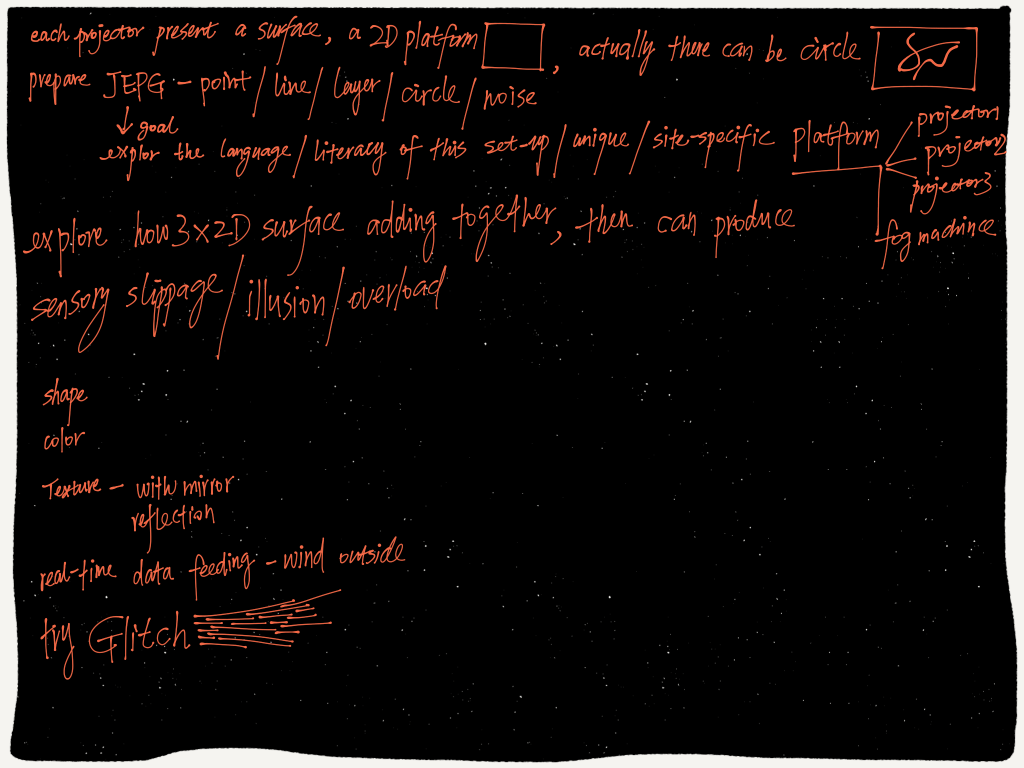 each projector present a surface, a 2D platform , actually there can be circle
prepare JEPG – point / line / layer / circle / noise
goal
explor the language / literacy of this set-up / unique / site-specific platform
projector1
projector2
projector3
fog machince
explore how 3×2D surface adding together, then can produce
sensory slippage / illusion / overload
shape
color
Texture – with mirror
reflection
real-time data feeding – wind outside
try Glitch